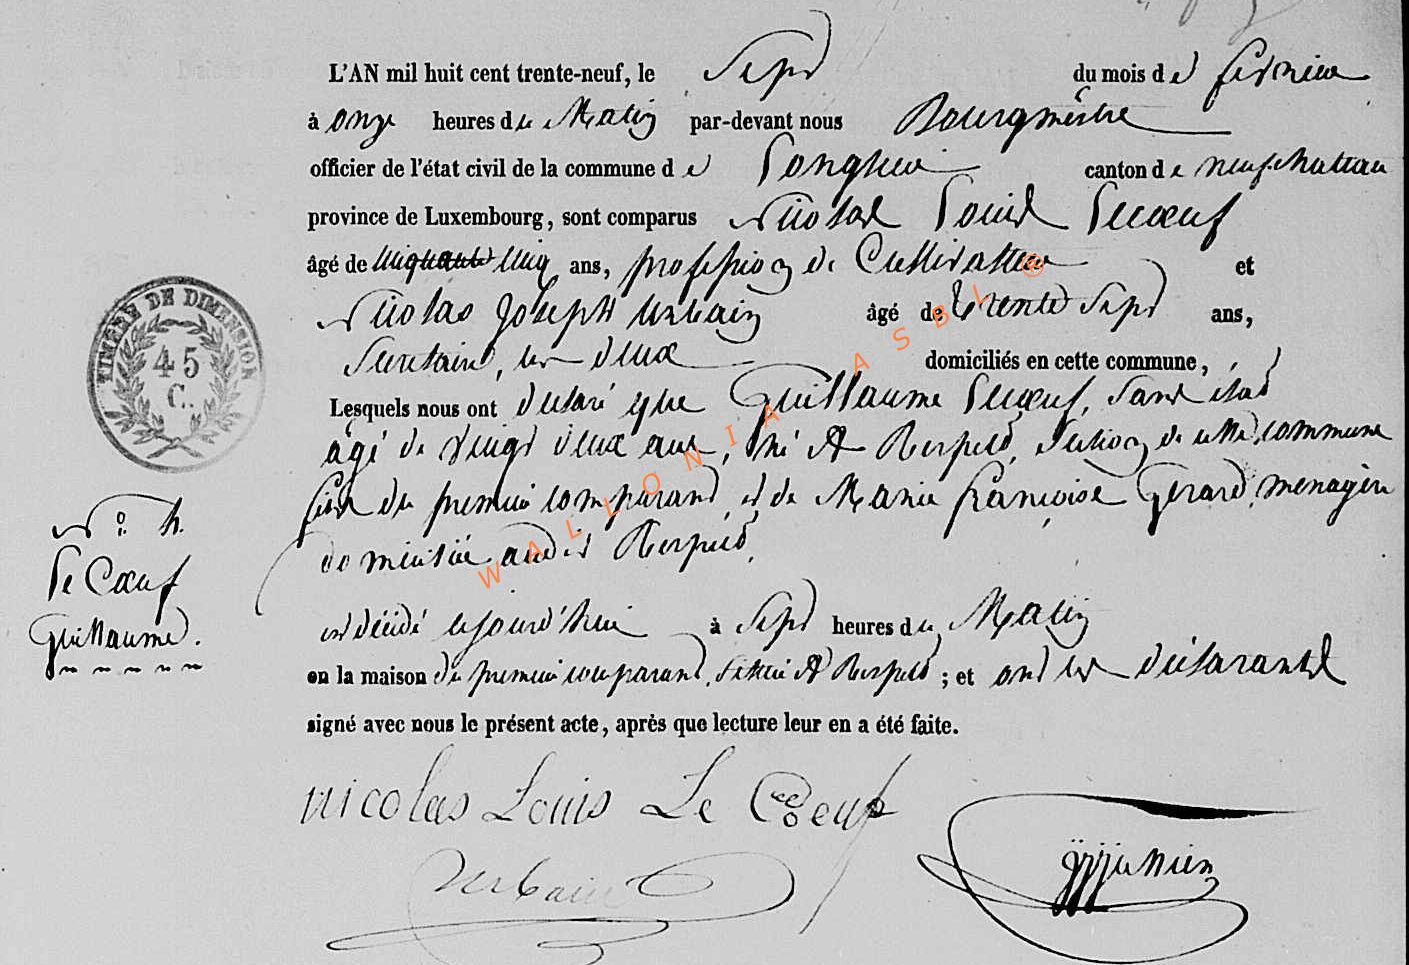 L'AN mil huit cent trente-neuf, le Sept du mois de fevrier
à onze heures du Matin par-devant nous Bourgmestre
officier de l'état civil de la commune de Longlier canton de neufchateau
province de Luxembourg, sont comparus Nicolas Louis Lecœuf
âgé de cinquante cinq ans, profession de Cultivateur et
Nicolas Joseph Urbain âgé de trente Sept ans,
Secretaire, les deux domiciliés en cette commune,
Lesquels nous ont declaré que Guillaume Lecœuf, sans état
âgé de vingt deux ans, né à Respelt, Section de cette commune
fils du premier comparant et de Marie françoise Gerard, menagère
domiciliée audit Respelt,
est décédé cejourd'hui à Sept heures du Matin
en la maison du premier comparant, située à Respelt ; et ont les déclarants
signé avec nous le présent acte, après que lecture leur en a été faite.
N° 4.
Le Cœuf
Guillaume.
TIMBRE DE DIMENSION
45
C.
nicolas Louis Le Coeuf
Urbain
WALLONIA ASBL ®